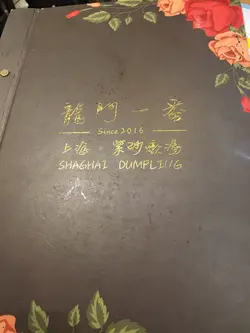 龍門一番
Since 2016
上海·紫砂歌湯
SHAGHAI DUMPLIUG